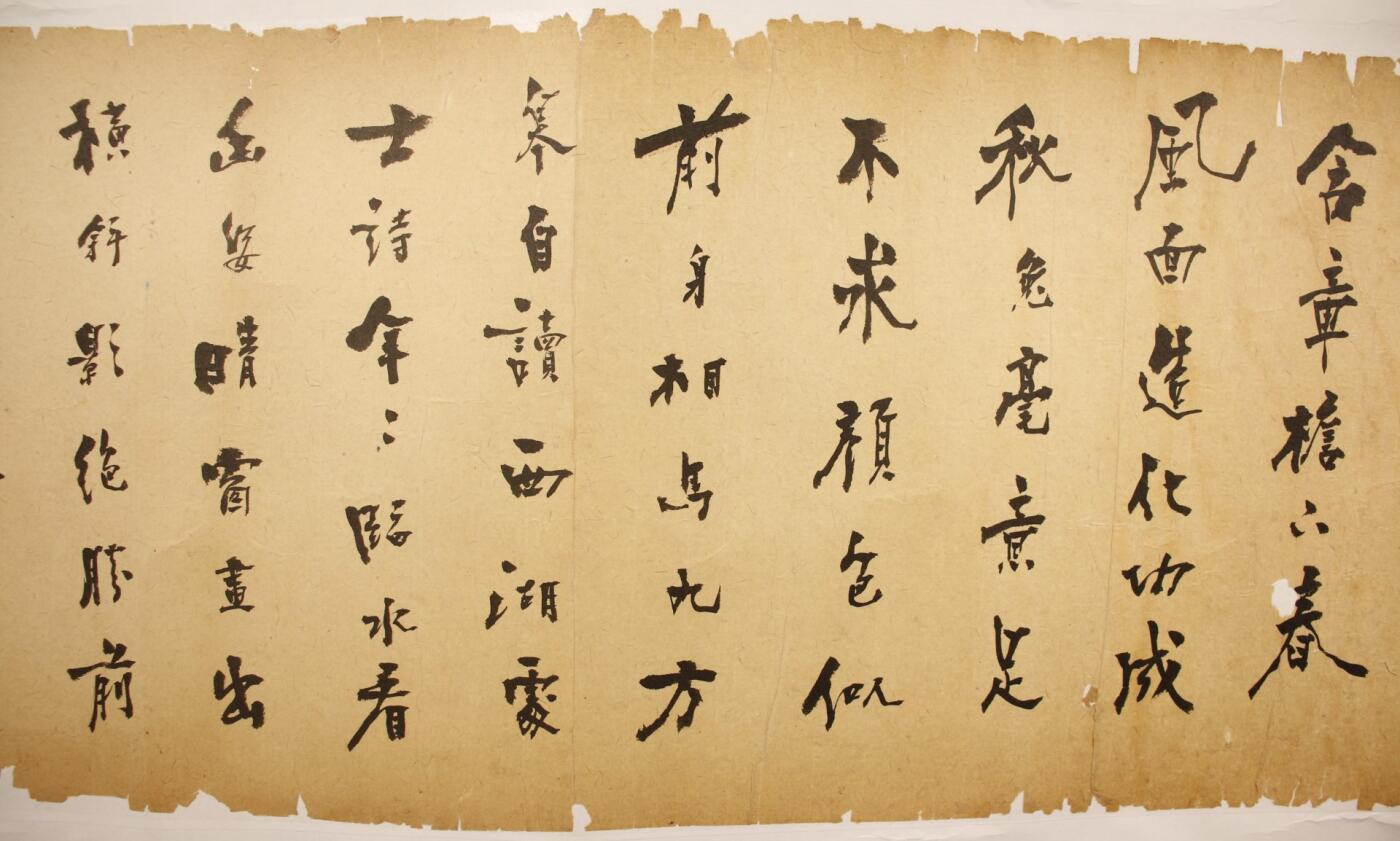 含章檐下春
風面造化功成
秋兔毫意足
不求顔色似
前身相馬九方
皋自讀西湖處
士詩年〻臨水看
幽姿晴窗畫出
橫斜影絶勝前